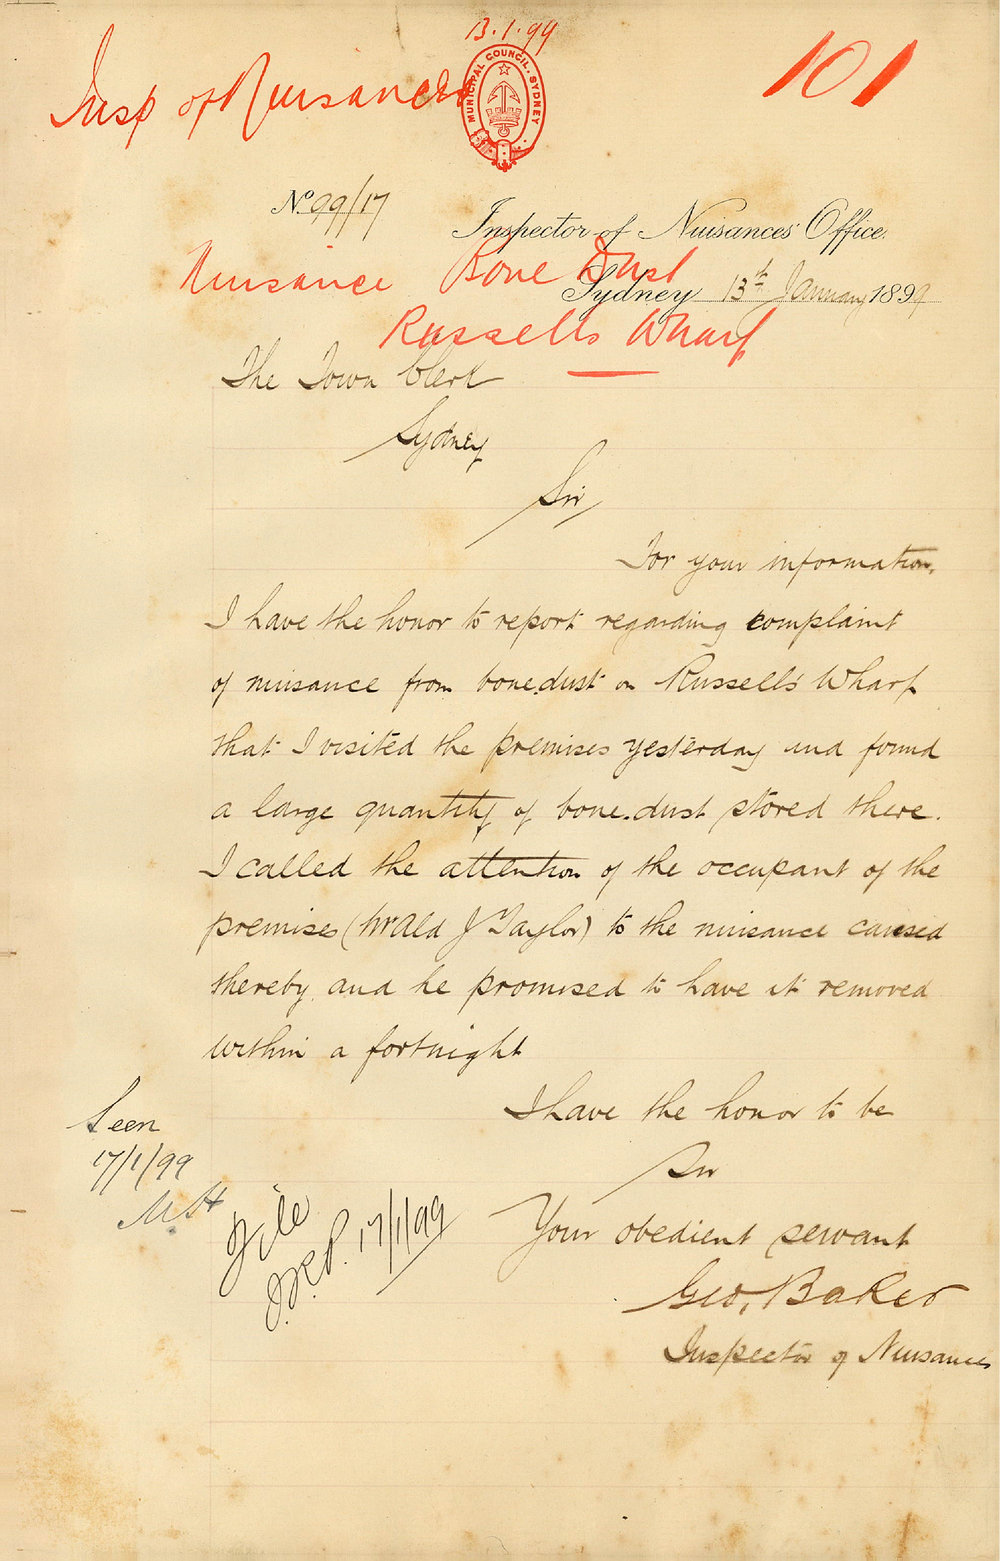 13.1.99
Insp of Nuisances
101
MUNICIPAL COUNCIL. SYDNEY
No. 99/17
Inspector of Nuisances' Office.
Nuisance Bone Dust
Sydney 13th January 1899
Russells Wharf
The Town Clerk
Sydney
Sir
For your information,
I have the honor to report regarding complaint
of nuisance from bone.dust on Russell's Wharf
that I visited the premises yesterday and found
a large quantity of bone.dust stored there.
I called the attention of the occupant of the
premises (Mr Ald J Taylor) to the nuisance caused
thereby and he promised to have it removed
within a fortnight
I have the honor to be
Sir
Your obedient servant
Geo, Baker
Inspector of Nuisances
Seen
17/1/99
File
17/1/99